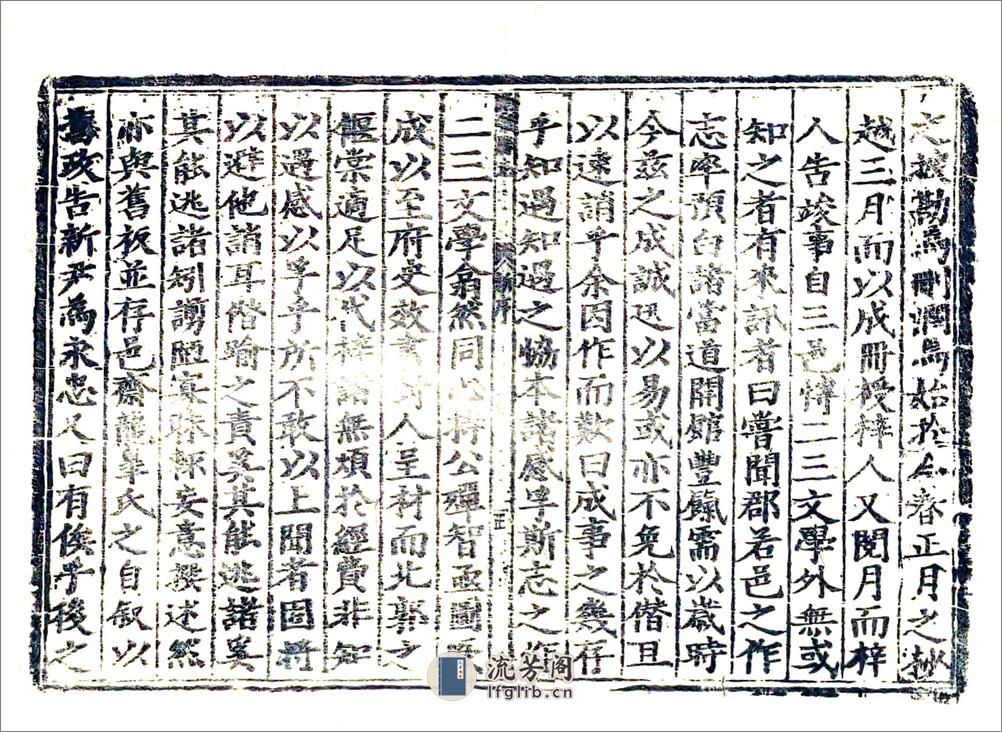 之按勘焉刪潤焉始於仝春正月之抄
越三月而以成冊授梓人又閱月而梓
人告竣事自三邑博二三文學外無或
知之者有來訊者曰嘗聞郡若邑之作
志率預白諸當道開館豐餼需以歲時
今茲之成誠迅以易或亦不免於僭且
以速誚乎余因作而歎曰成事之幾存
乎知遇知遇之協本諸感孚斯志之作
二三文學翕然同心持公殫智亟圖厥
成以至府吏效書封人呈材而北寧之
偃棠適足以代梓諸無煩於經費非知
以遇感以孚乎所不敢以上聞者固將
以避他誚耳僭踰之責奚其能逃諸奚
其能逃諸矧謭陋寡昧輒妄意撰述然
亦與舊板並存邑齋龍皋氏之自敘以
舊政告新尹為永忠又曰有俟乎後之
流芳阁
lfglib.cn